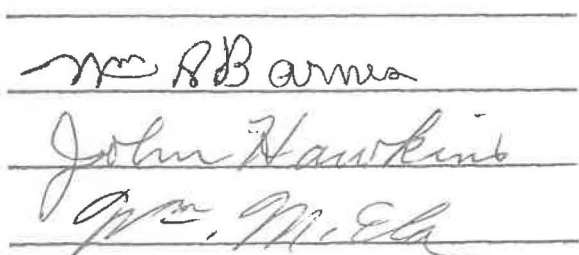 Wm A Barnes
John Hawkins
Wm. M. Ela